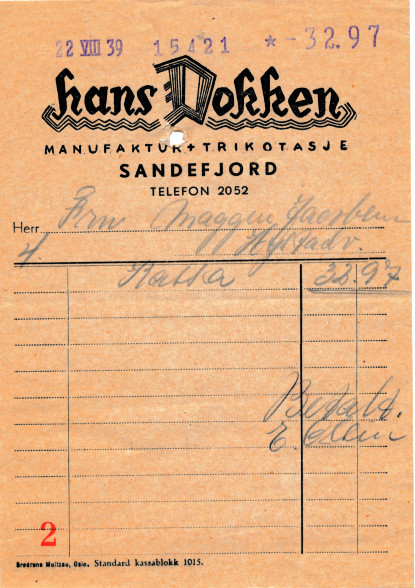 22 VIII 39 15421 * -32.97
hans Dokken
MANUFAKTUR + TRIKOTASJE
SANDEFJORD
TELEFON 2052
Herr Fru Maggen Jacobsen
4.
Kassa 32.97
Betalt.
E.
2
Brødrene Moltzau, Oslo. Standard kassablokk 1015.